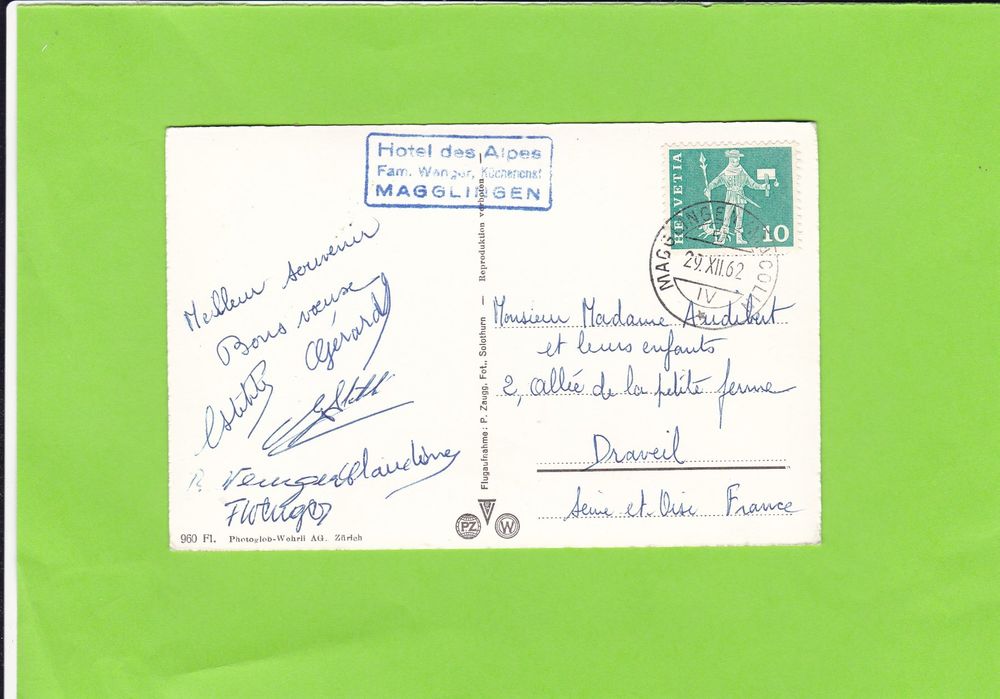 Hotel des Alpes
Fam. Wenger, Küchenchef
MAGGLINGEN
HELVETIA
10
MAGGLINGEN MACOLIN
29.XII.62
IV
Meilleur souvenir
Bons vœux
Gérard
R. Wenger Claudine
F Wenger
Monsieur Madame Audibert
et leurs enfants
2, allée de la petite ferme
Draveil
Seine et Oise France
Flugaufnahme: P. Zaugg, Fot., Solothurn — Reproduktion verboten
960 Fl. Photoglob-Wehrli AG. Zürich
PZ
W